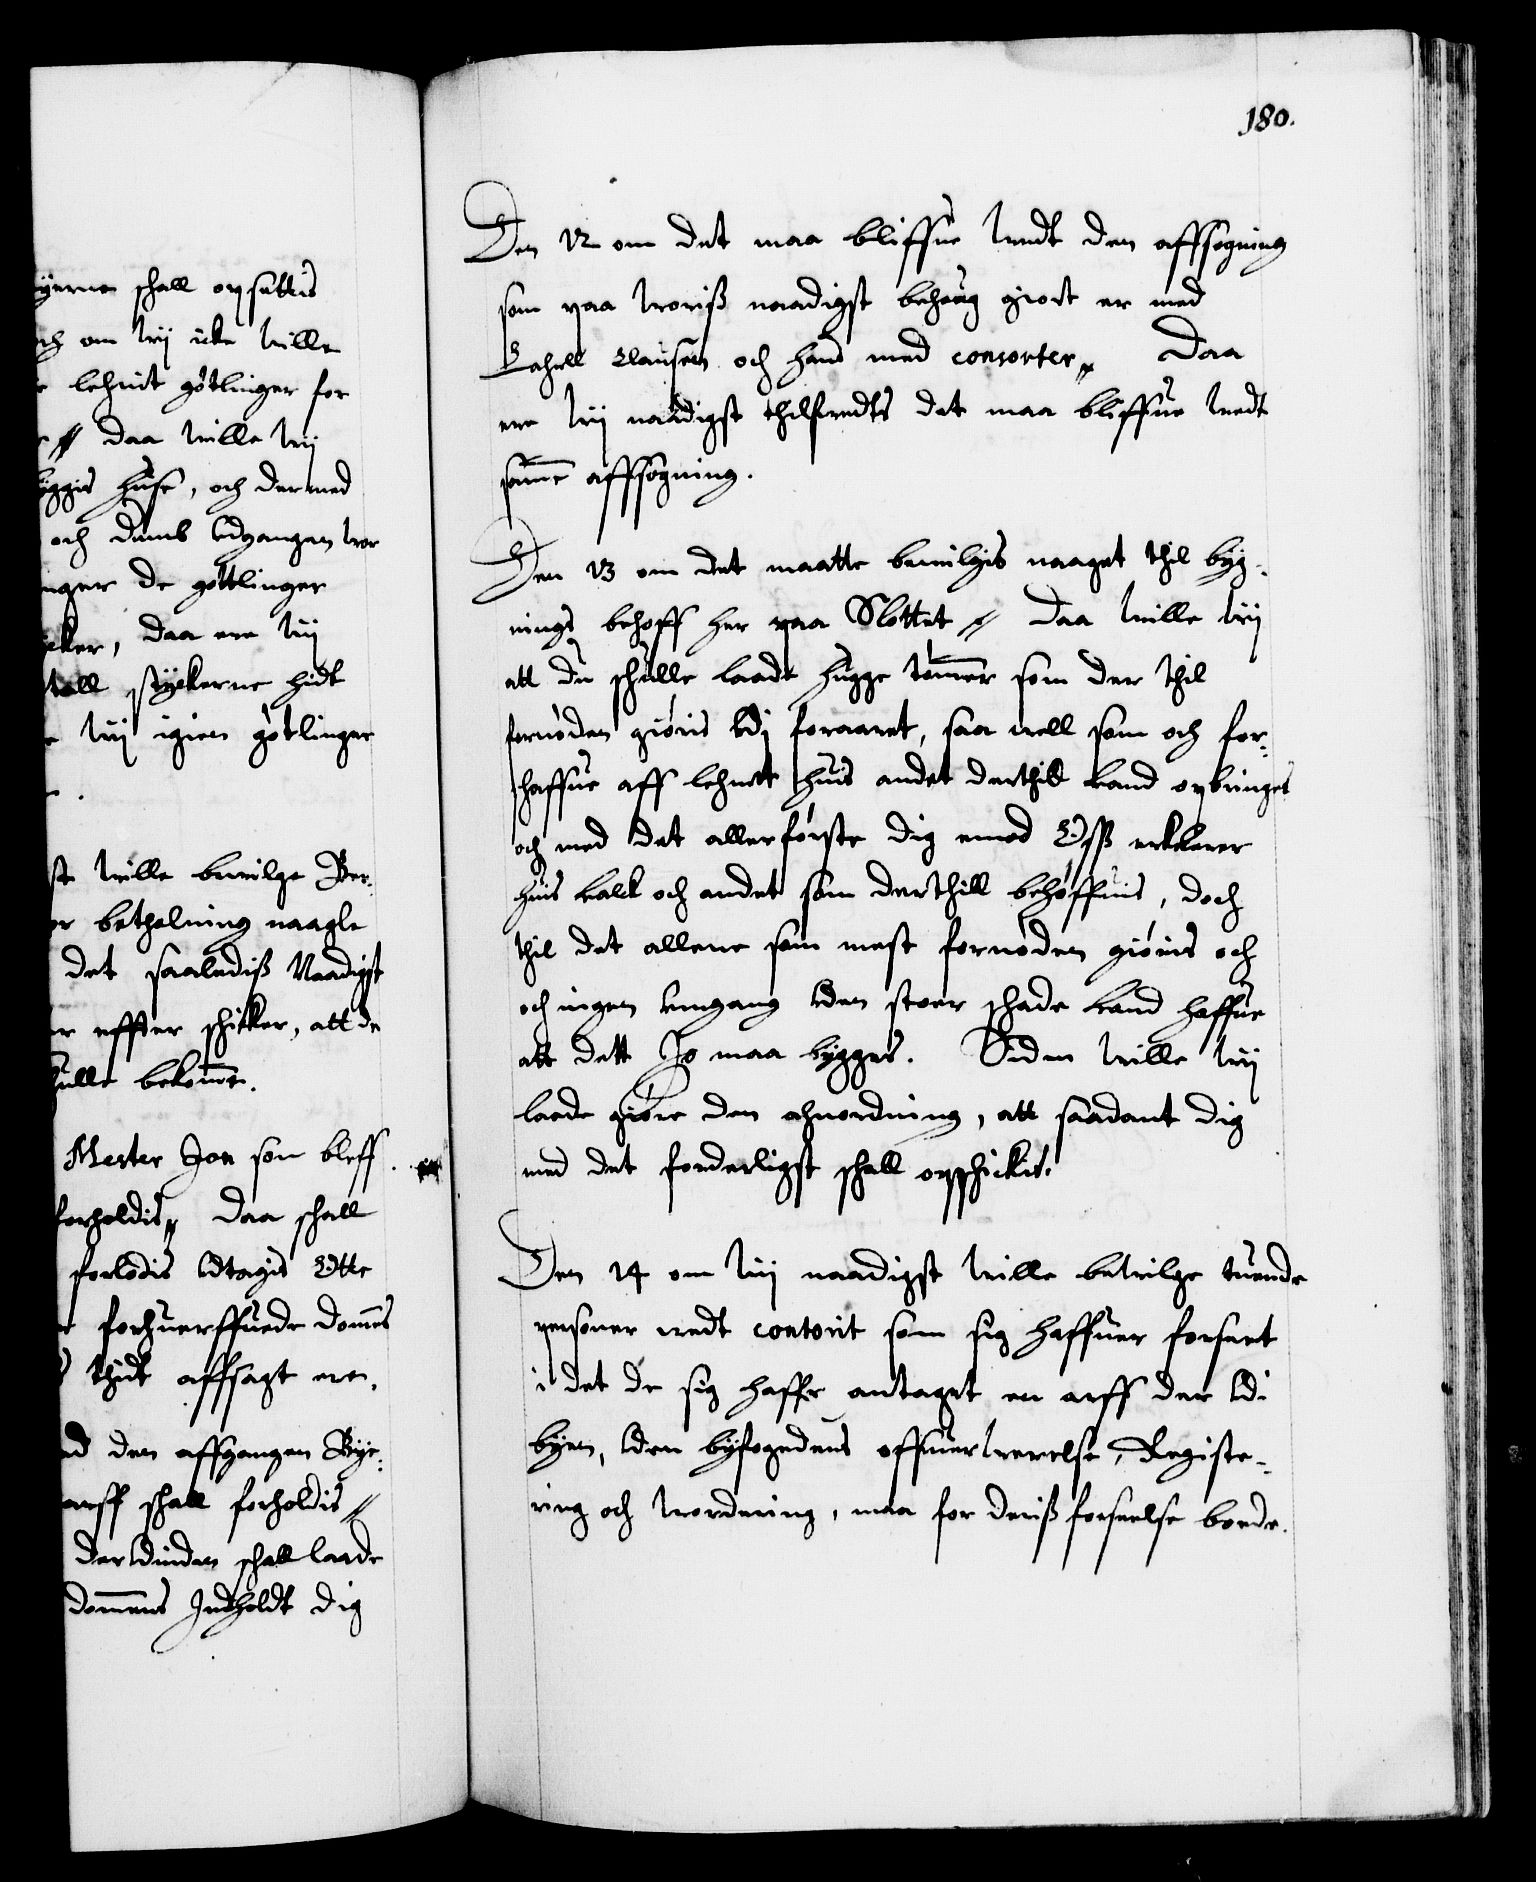 yerne schall opsettis
och om wy icke wille
lehnit götlinger for
daa wille wy
byggis huse, och dermed
och dend Udgangen wor
inger de göttlinger
ycker, daa ere wy
tall styckerne hidt
wy igien götlinger
wille bewilge Ber-
or bethalning naagle
det saalediß Naadigst
er effter schicker, att de
hulle bekomme.
Mester Jon som bleff
forholdis, daa schall
forlodis Udtagis Ette
forhuerffuede dommes
thidt affsagt ere.
ed den affgangen Bye-
arff schall forholdis
der Uinden schall laade
dommens Indholdt dig
180.
Den 12 om det maa bliffue wedt den affsogning
som paa woriß naadigst behaug giort er med
Cahrll Clausen och hans med consorter, Daa
ere wy naadigst thilfredts det maa bliffue wedt
samme affsogning.
Den 13 om det maatte bewilgis naaget thil byg-
nings behoff her paa Slottet, Daa wille wy
att du schulle laade hugge tømmer som der thil
fornöden giöris Udj foraaret, saa well som och for-
schaffue aff lehnet huis andet derthill kand opbringes
och med det allerförste dig emod Oß erklerer
huis kalck och andet som derthill behöffuis, doch
thil det allene som mest fornöden giöris och
och ingen Umgang Uden stoer schade kand haffue
att dett Jo maa bygges. Siden wille wy
laede giöre den ahnordning, att saadant dig
med det forderligst schall opschickis.
Den 14 om wy naadigst wille bewilge tuende
personer wedt contorit som sig haffuer forseet
i det de sig haffr antaget en arff der Udi
byen, Uden byfogedens offuerwerelse, Registe-
ring och wordering, maa for deriß forseelse boede.